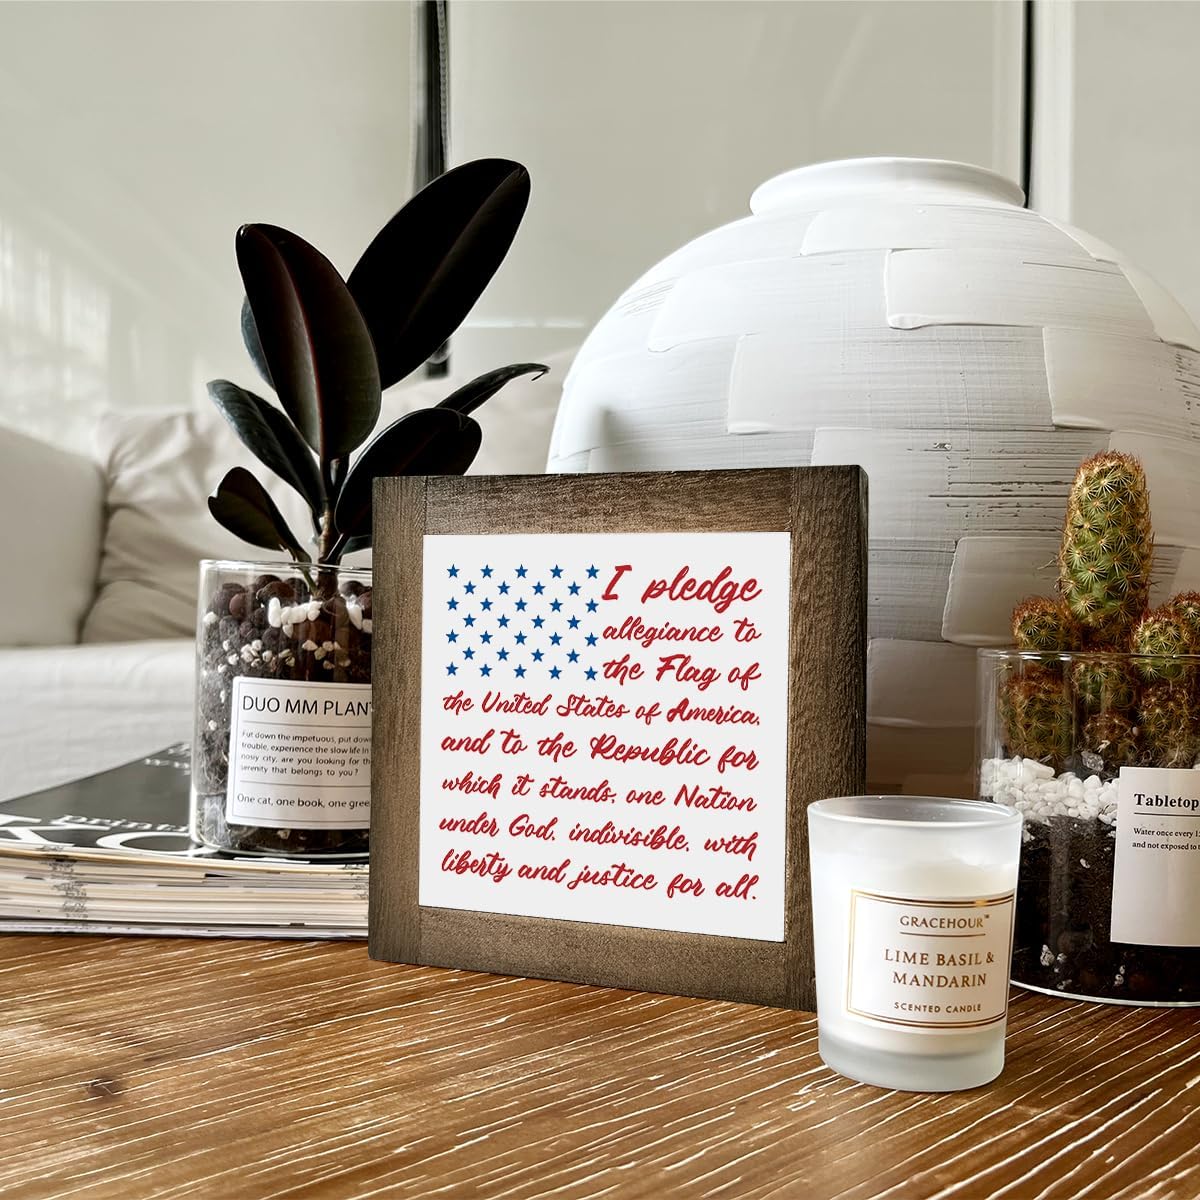 I pledge
allegiance to
the Flag of
the United States of America,
and to the Republic for
which it stands, one Nation
under God, indivisible, with
liberty and justice for all.
DUO MM PLANT
Put down the impetuous, put down
trouble, experience the slow life in
noisy city, are you looking for the
serenity that belongs to you?
One cat, one book, one green
GRACEHOUR™
LIME BASIL &
MANDARIN
SCENTED CANDLE
Tabletop
Water once every
and not exposed to